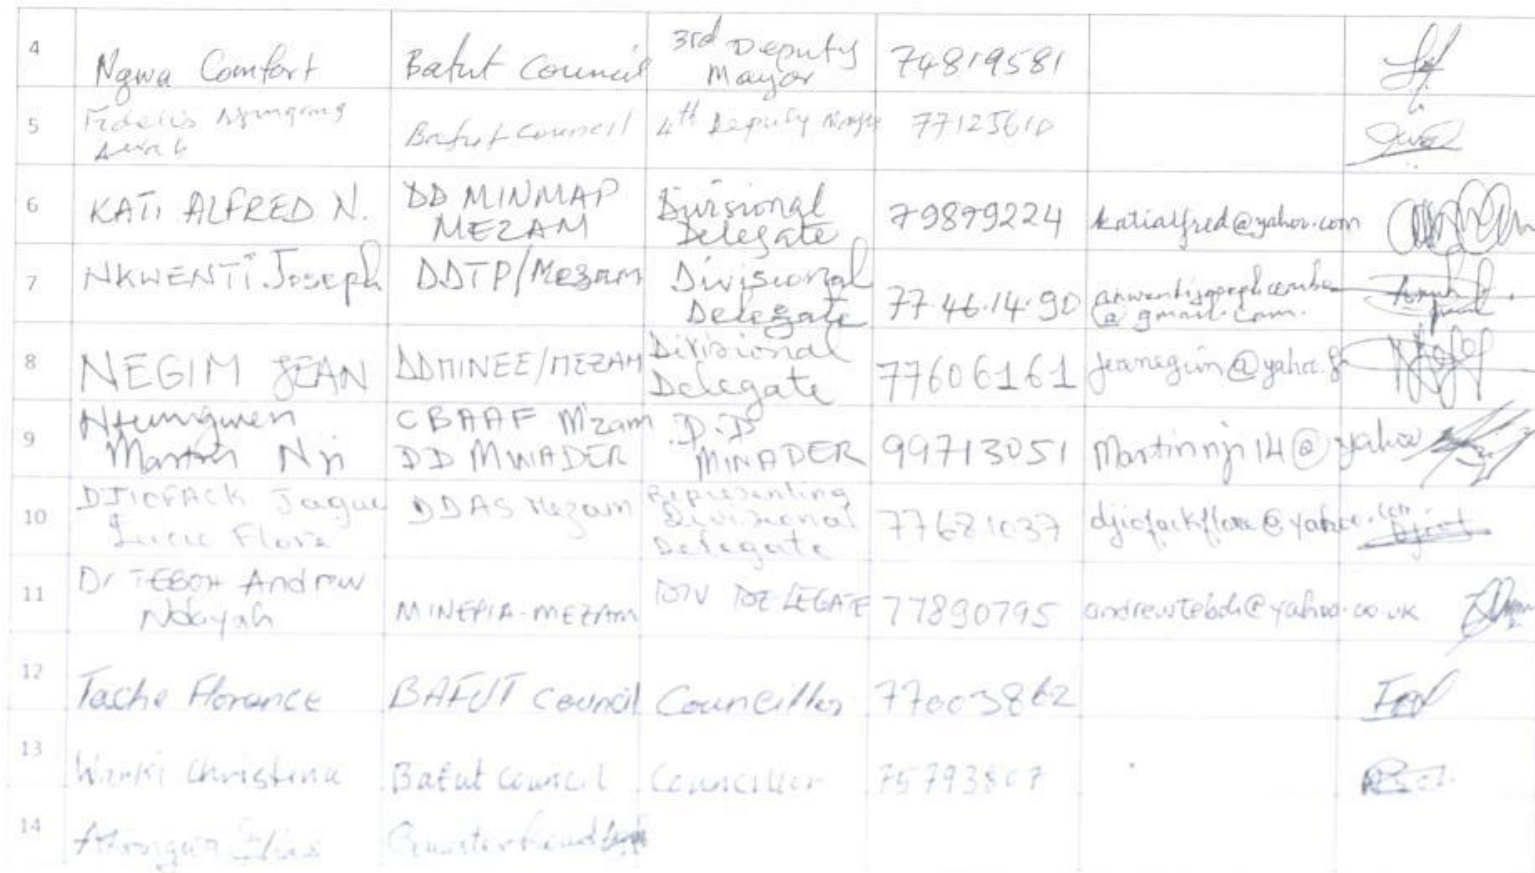 4 Ngwa Comfort Bafut Council 3rd Deputy Mayor 74819581
5 Fidelis Bafut Council 4th Deputy Mayor 77125610
6 KATI ALFRED N. DD MINMAP MEZAM Divisional Delegate 79879224 katialfred@yahoo.com
7 NKWENTI Joseph DDTP/Mezam Divisional Delegate 77.46.14.90 @gmail.com.
8 NEGIM JEAN DDMINEE/MEZAM Divisional Delegate 77606161 jeanegim@yahoo.fr
9 Ntumgwen Martin Nji CBAAF M'zam DD MINADER D.D MINADER 99713051 Martinnji14@yahoo
10 DJIOFACK Jague Lucie Flore DDAS Mezam Representing Divisional Delegate 77621037 djiofackflore@yahoo.com
11 Dr TEBOH Andrew Ndayah MINEPIA-MEZAM DIV DELEGATE 77890795 andrewteboh@yahoo.co.uk
12 Tache Florence BAFUT Council Councillor 77003862
13 Christina Bafut Council Councillor 75793807
14